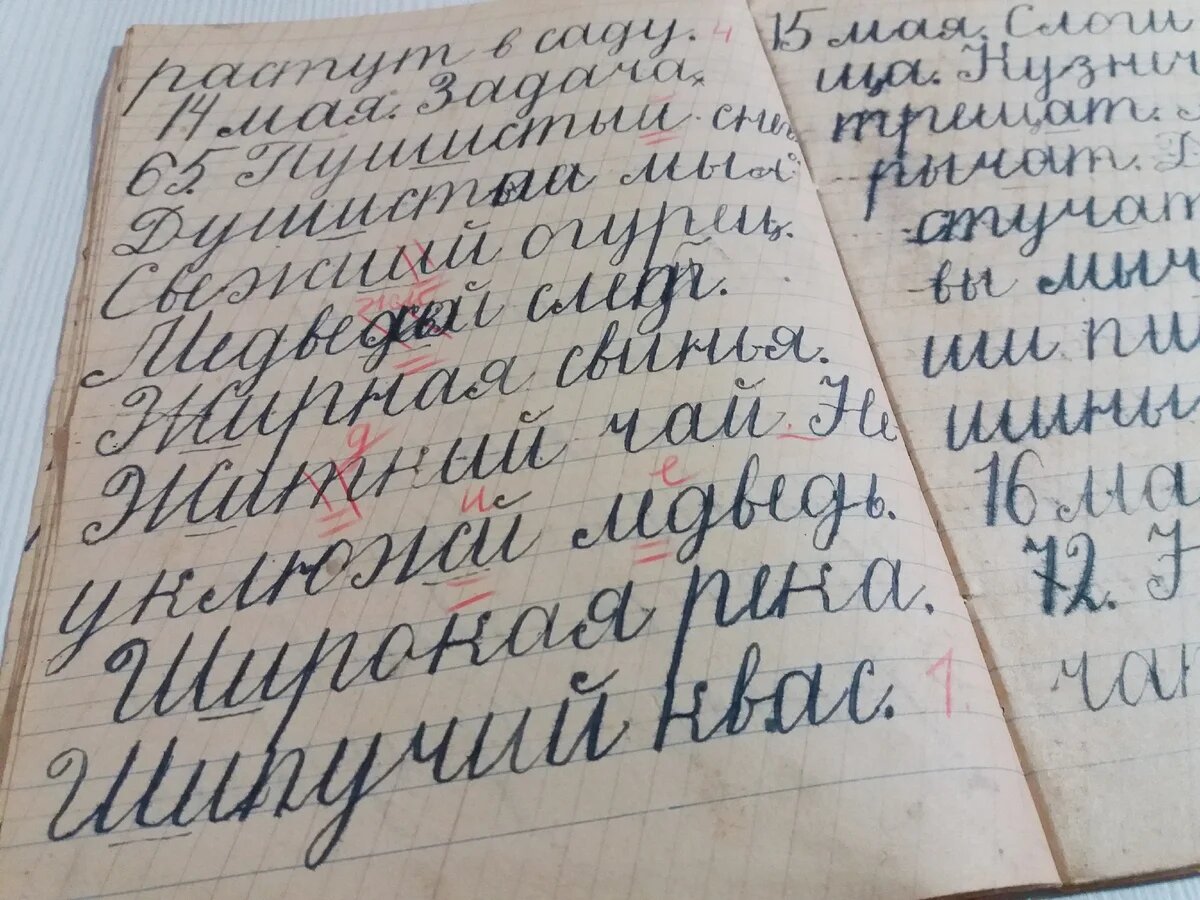 растут в саду. 4
14 мая. Задача
65. Пушистый снег
Душистыа мыла
Свежший огурец.
Медвежий след.
Жирная свинья.
Житкий чай. Не
уклюжй мдведь.
Широкая река.
Шипучий квас. 1.
15 мая. Слоги
ща.
трещат.
рычат.
стучат
вы мыч
ши пи
шины
16 ма
72.